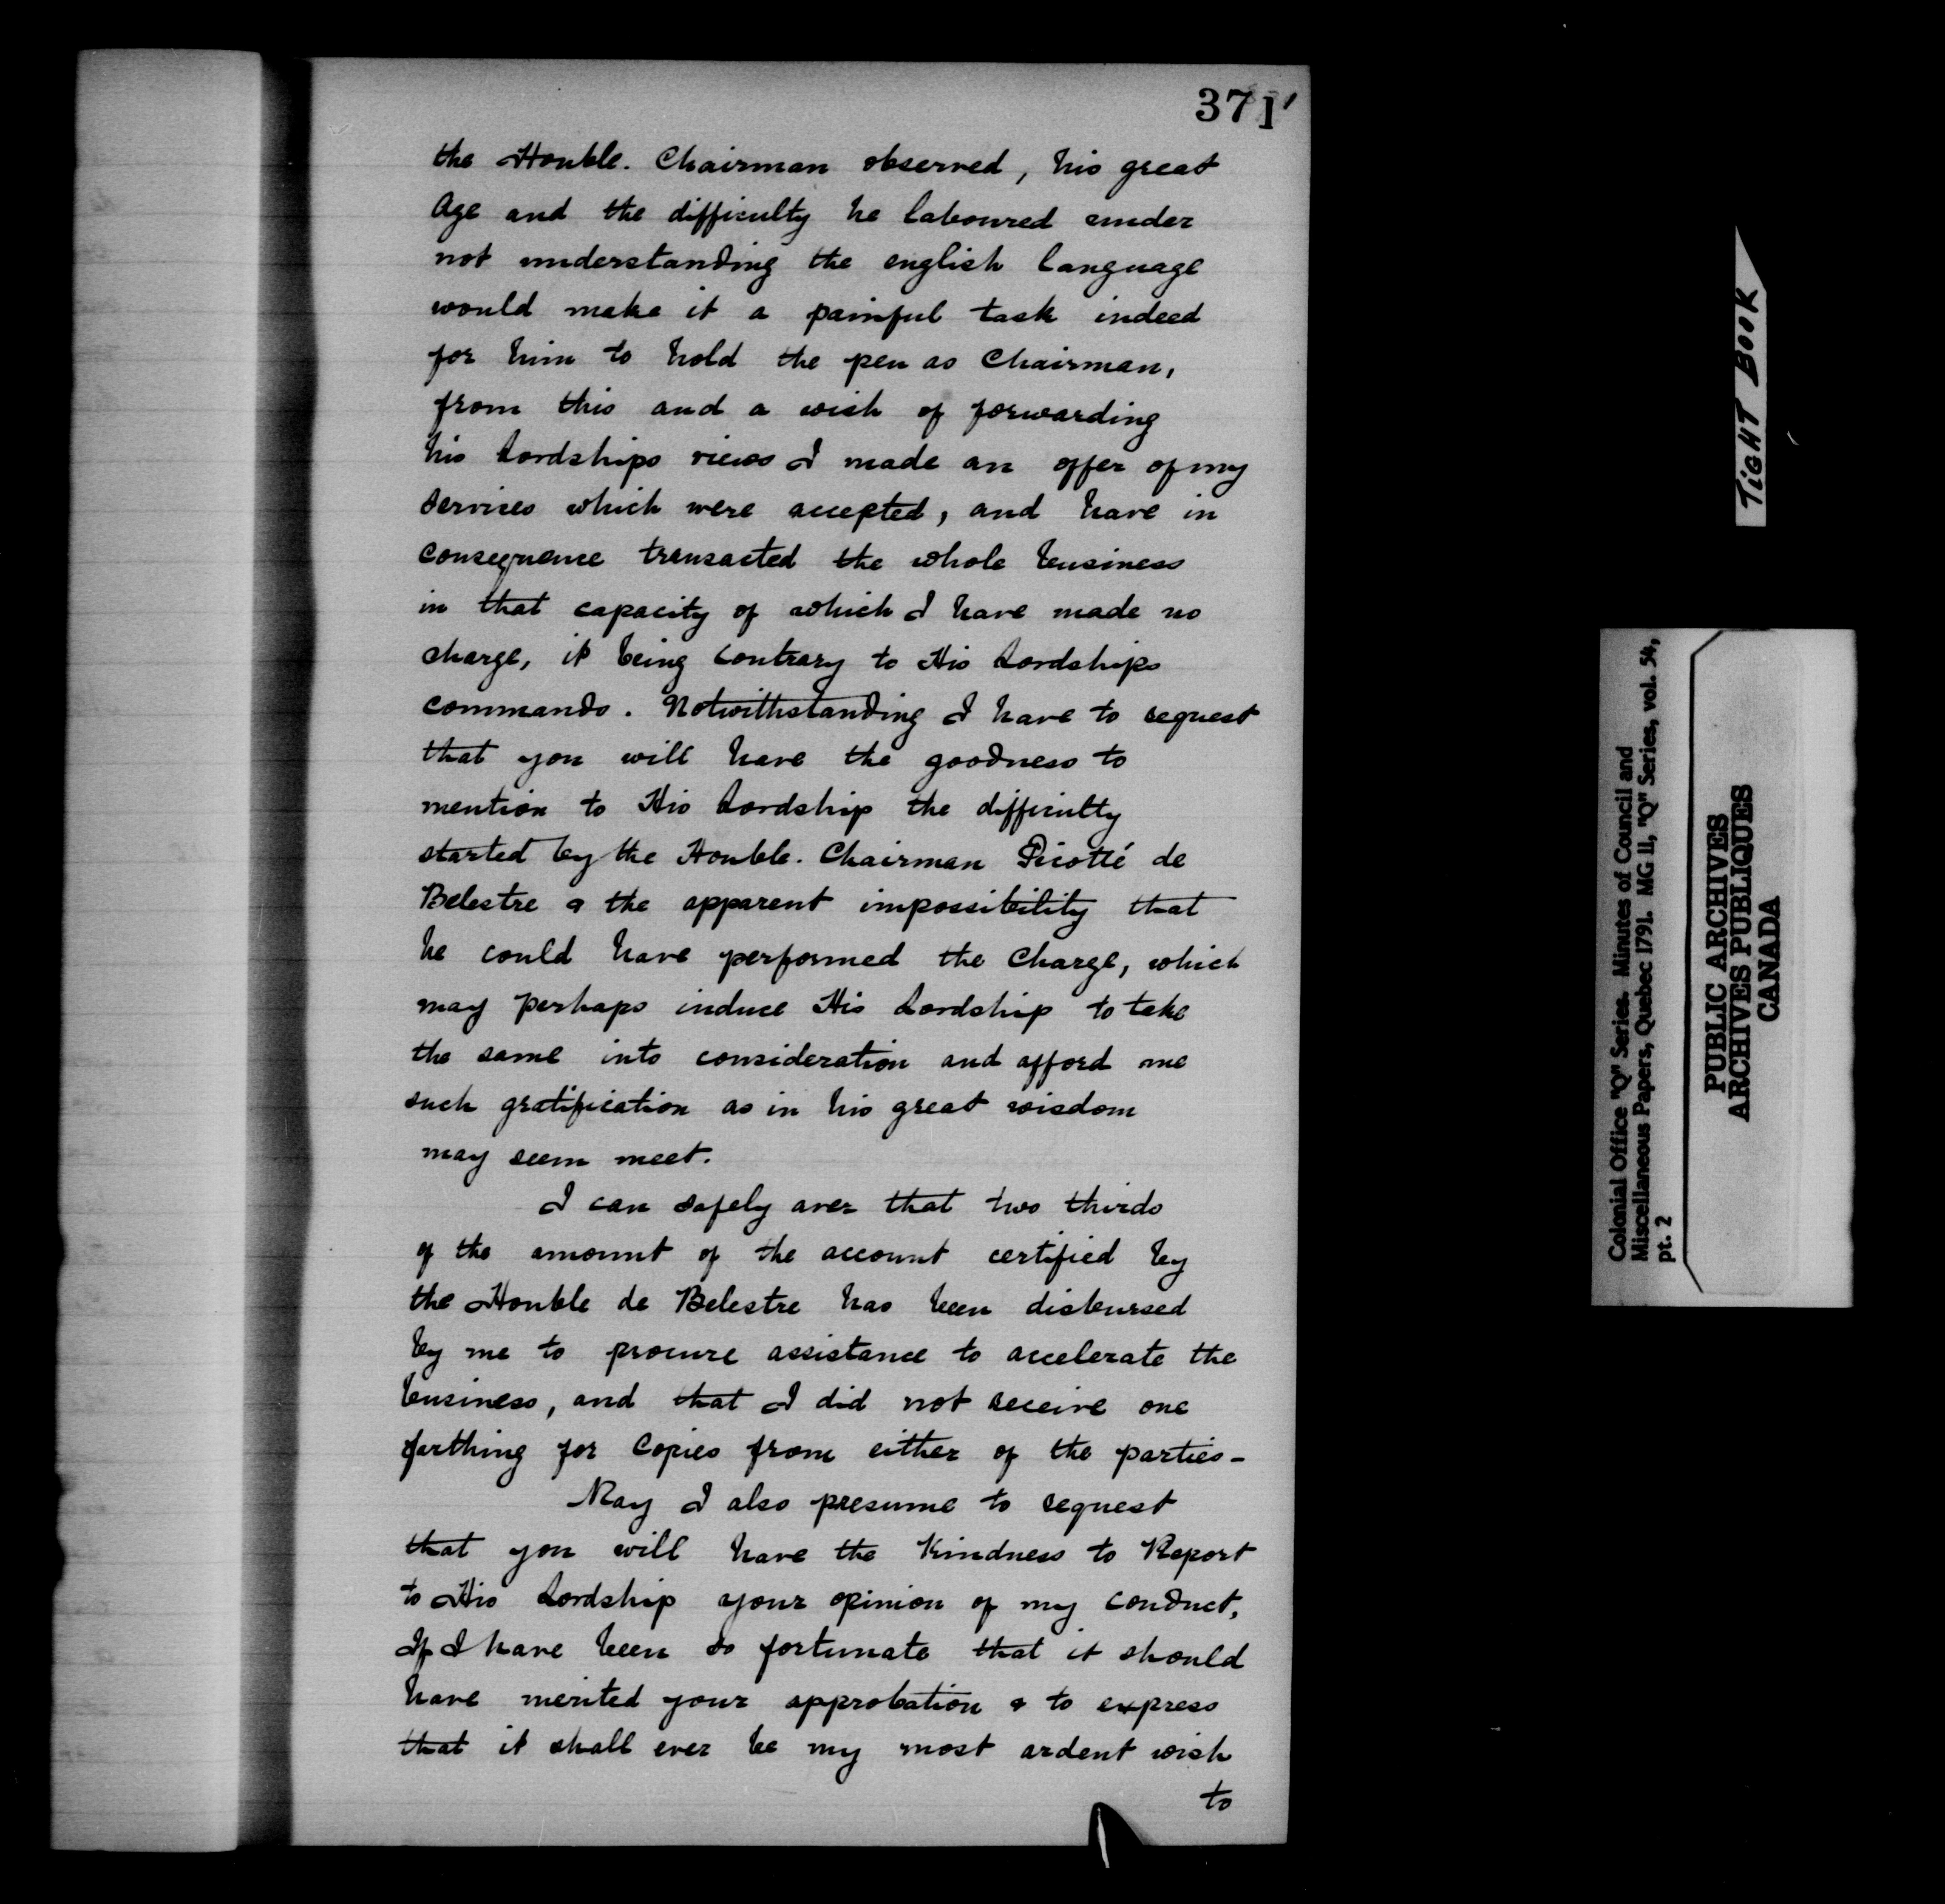 371
the Honble. Chairman observed, his great
Age and the difficulty he laboured under
not understanding the english language
would make it a painful task indeed
for him to hold the pen as Chairman,
from this and a wish of forwarding
his Lordships views I made an offer of my
services which were accepted, and have in
consequence transacted the whole business
in that capacity of which I have made no
charge, it being contrary to His Lordships
commands. Notwithstanding I have to request
that you will have the goodness to
mention to His Lordship the difficulty
started by the Honble. Chairman Picotté de
Belestre & the apparent impossibility that
he could have performed the Charge, which
may perhaps induce His Lordship to take
the same into consideration and afford me
such gratification as in his great wisdom
may seem meet.
I can safely aver that two thirds
of the amount of the account certified by
the Honble de Belestre has been disbursed
by me to procure assistance to accelerate the
business, and that I did not receive one
farthing for Copies from either of the parties -
May I also presume to request
that you will have the Kindness to Report
to His Lordship your opinion of my conduct,
If I have been so fortunate that it should
have merited your approbation & to express
that it shall ever be my most ardent wish
to
TIGHT BOOK
Colonial Office "Q" Series. Minutes of Council and
Miscellaneous Papers, Quebec 1791. MG 11, "Q" Series, vol. 54,
pt. 2
PUBLIC ARCHIVES
ARCHIVES PUBLIQUES
CANADA